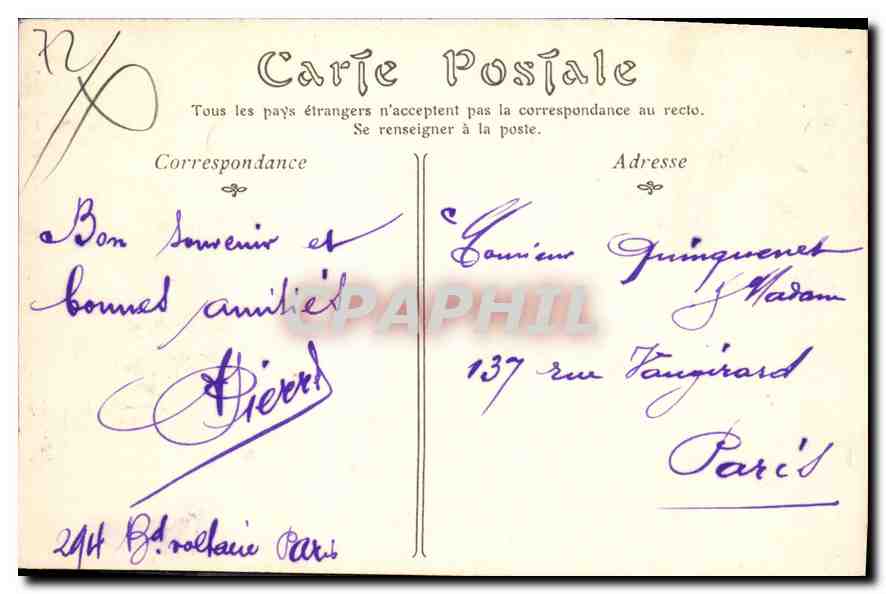 72
Carte Postale
Tous les pays étrangers n'acceptent pas la correspondance au recto.
Se renseigner à la poste.
Correspondance
Bon souvenir et
bonnes amitiés
Pierre
294 Bd. voltaire Paris
Adresse
Monsieur Quinquenet
& Madame
137 rue Vaugirard
Paris
CPAPHIL